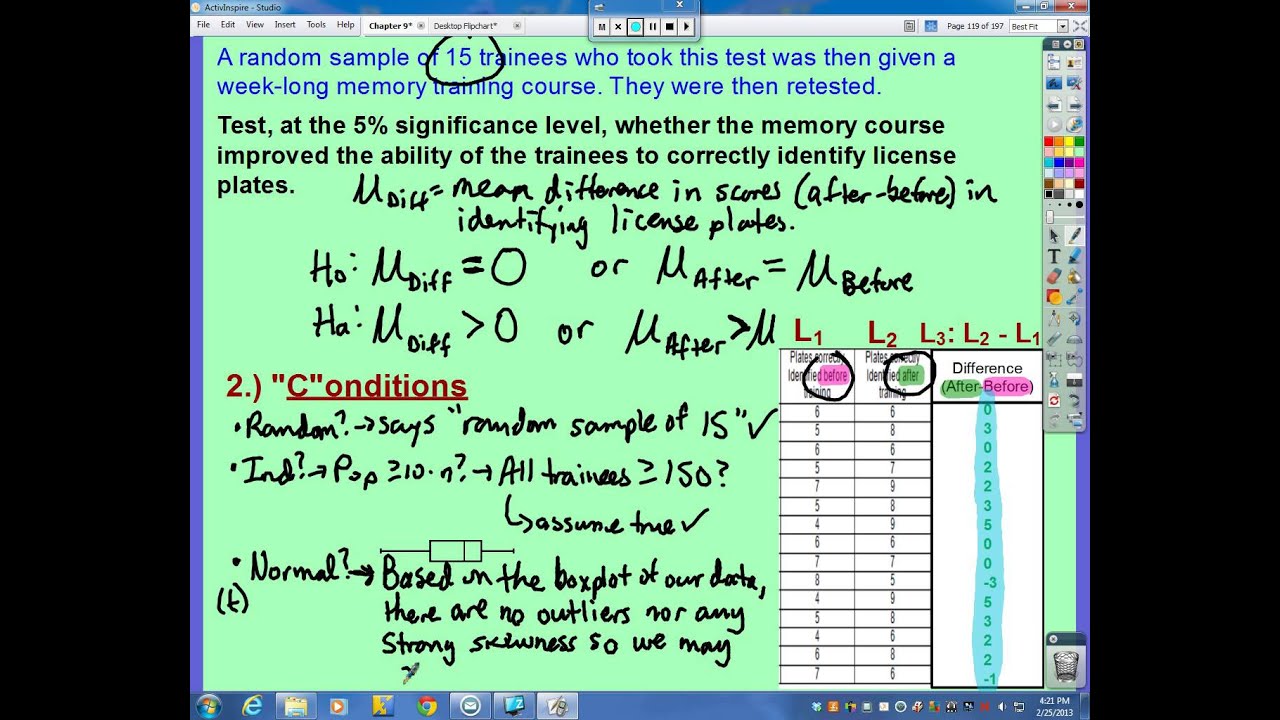 ActivInspire - Studio
File Edit View Insert Tools Help
Chapter 9* Desktop Flipchart*
Page 119 of 197 Best Fit
A random sample of 15 trainees who took this test was then given a
week-long memory training course. They were then retested.
Test, at the 5% significance level, whether the memory course
improved the ability of the trainees to correctly identify license
plates.
μDiff = mean difference in scores (after-before) in
identifying license plates.
Ho: μDiff = 0 or μAfter = μBefore
Ha: μDiff > 0 or μAfter > μ
L1 L2 L3: L2 - L1
Plates correctly Identified before training
Plates correctly Identified after training
Difference
(After-Before)
6 6 0
5 8 3
6 6 0
5 7 2
7 9 2
5 8 3
4 9 5
6 6 0
7 7 0
8 5 -3
4 9 5
5 8 3
4 6 2
6 8 2
7 6 -1
2.) "C"onditions
• Random? → says "random sample of 15" ✓
• Ind? → Pop ≥ 10·n? → All trainees ≥ 150?
↳ assume true ✓
• Normal? → Based on the boxplot of our data,
(t)
there are no outliers nor any
strong skewness so we may
4:21 PM
2/25/2013